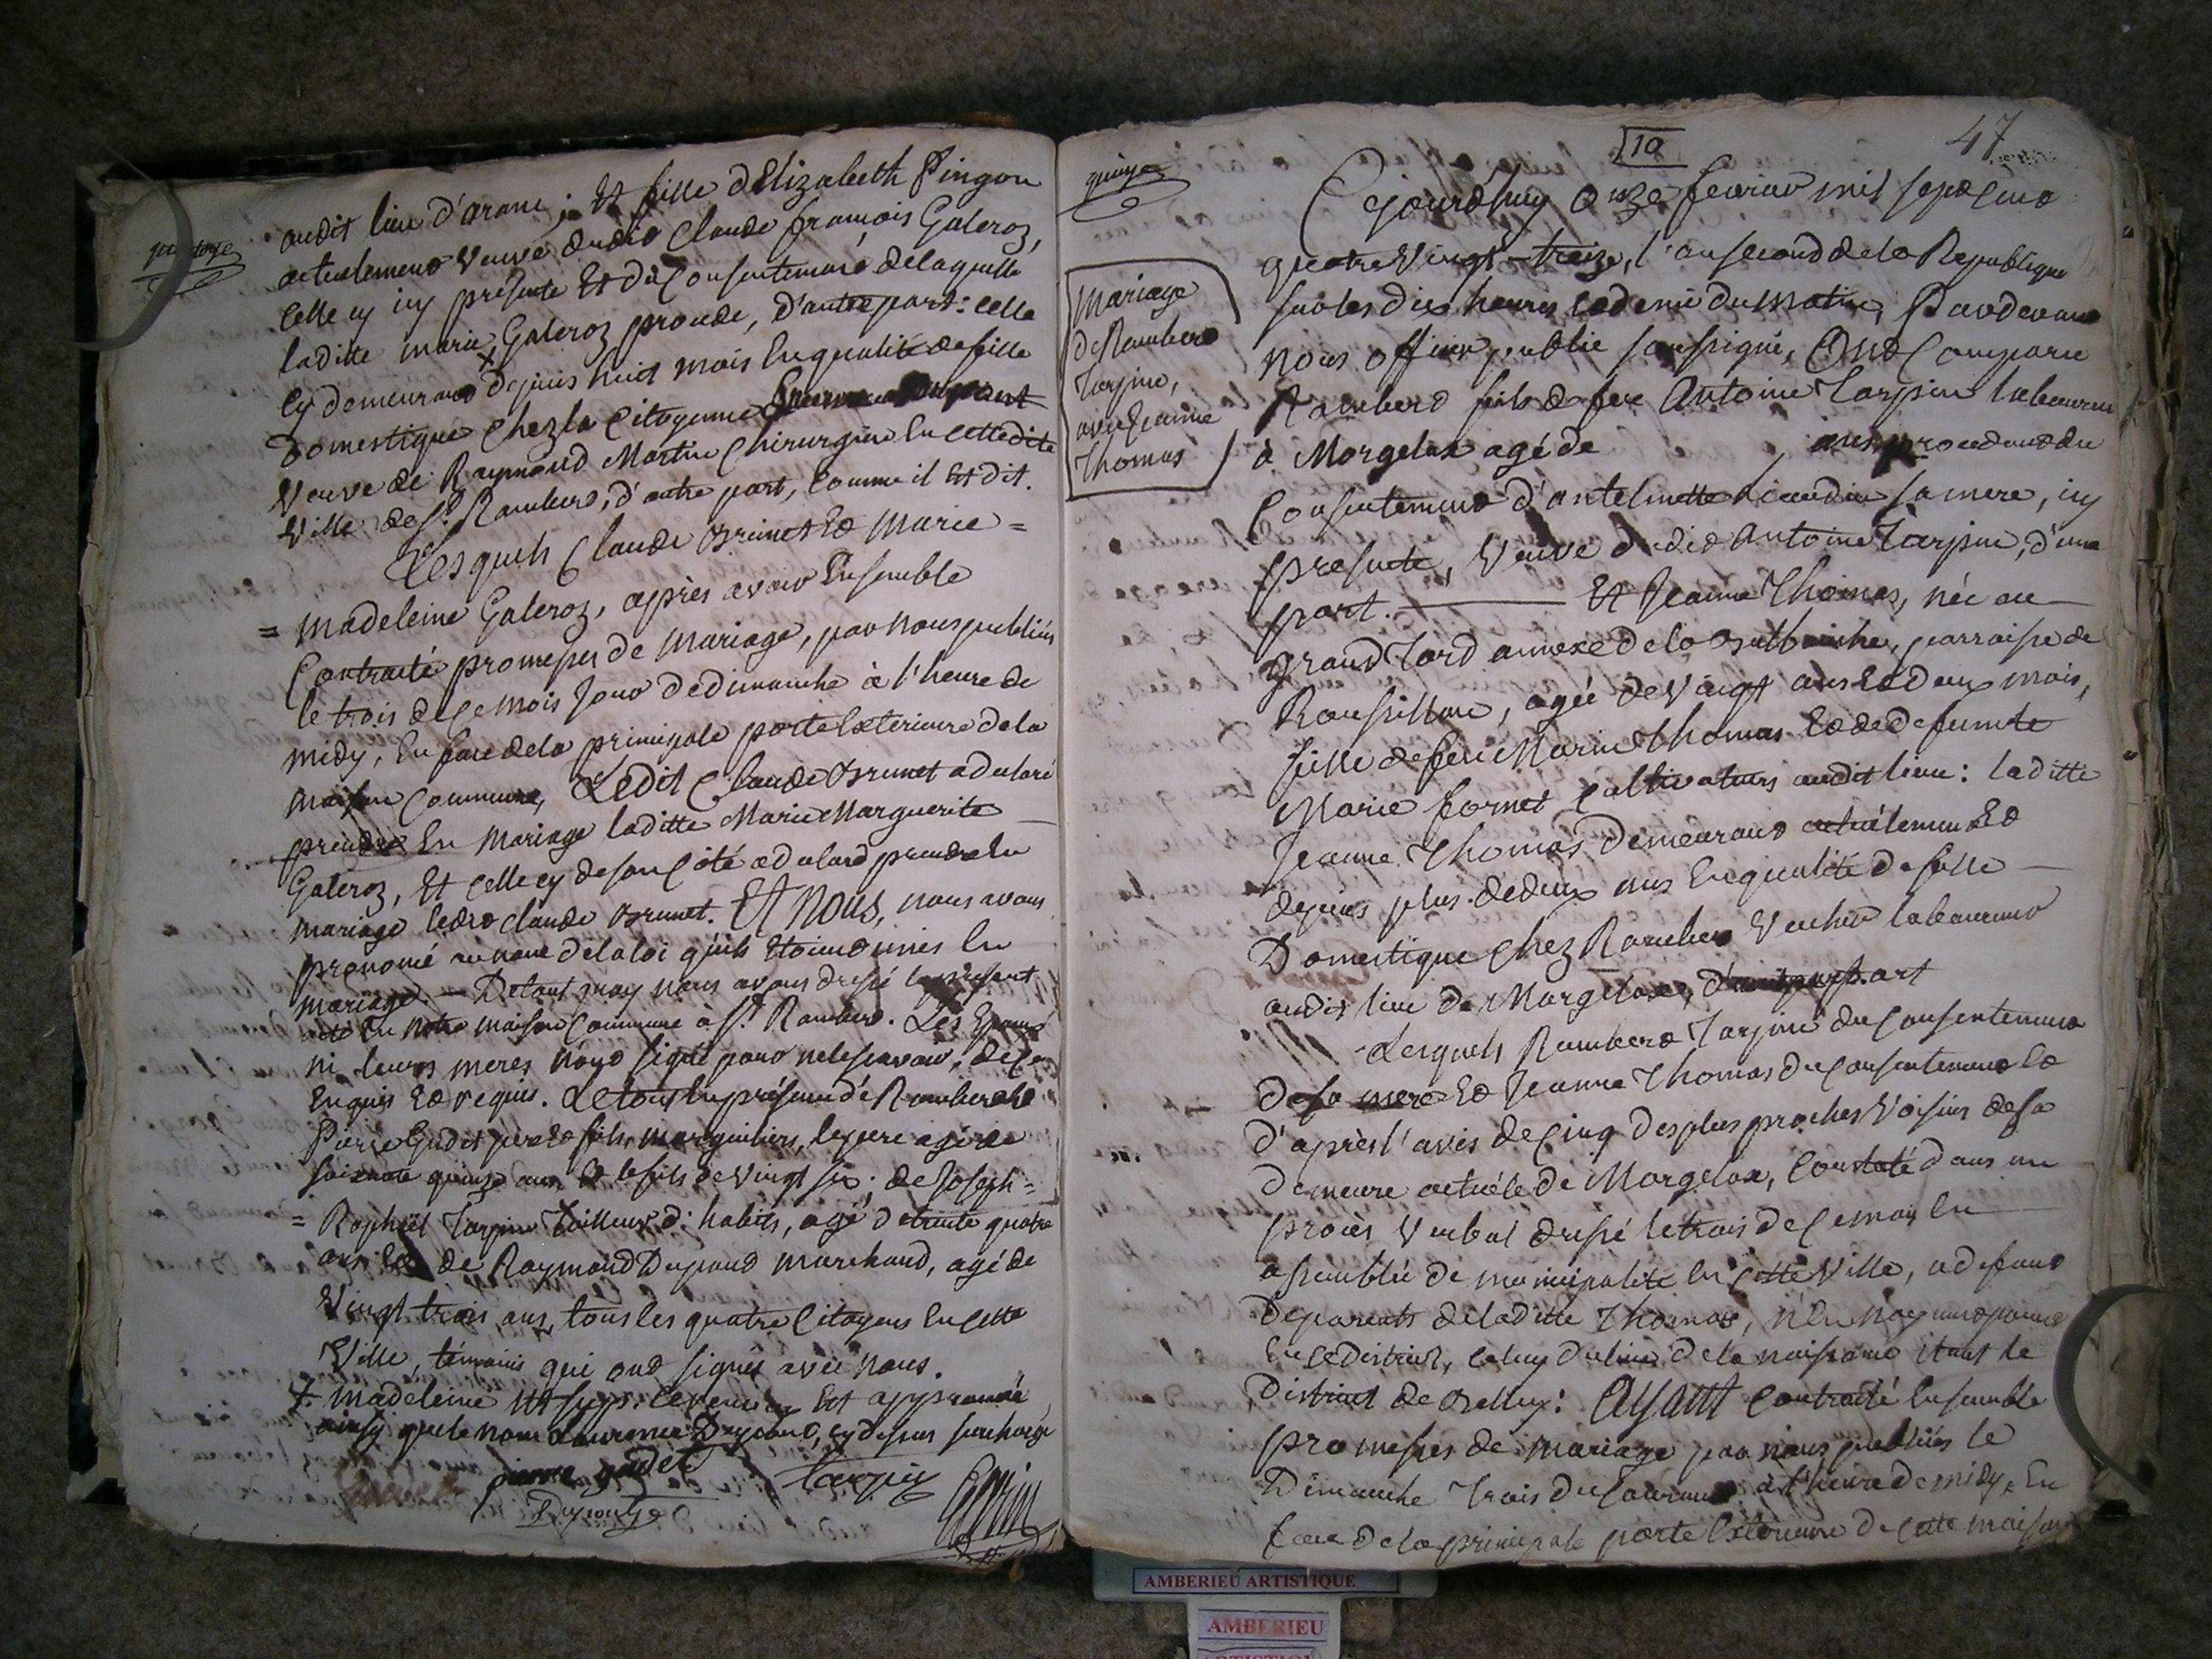 quatorze
audit lieu d'aranc; Et fille d'Elizabeth Pingon
actuelement veuve dudit Claude françois Galeroz,
celle cy icy présente Et du Consentement delaquelle
laditte marie + Galeroz procede, d'autre part: celle
cy demeurant depuis huit mois En qualité de fille
Domestique chez la Citoyenne
veuve de Raymond Martin Chirurgien En cettedite
ville de St. Rambert, d'autre part, comme il Est dit.
Lesquels Claude Brunet Et Marie =
= madeleine Galeroz, après avoir Ensemble
Contracté promesses de mariage, par nous publiées
le trois de ce mois Jour de dimanche à l'heure de
midy, En face dela principale porte Exterieure dela
maison Commune, Ledit Claude Brunet a declaré
prendre En mariage laditte Marie Marguerite
Galeroz, Et celle cy de son côté a declaré prendre En
mariage ledit Claude Brunet. Et Nous, nous avons
prononcé au nom de la loi qu'ils Etoient unis En
mariage. — De tout quoy nous avons dressé le présent
acte En notre maison Commune à St. Rambert. Les Epoux
ni leurs meres n'ont signé pour ne le sçavoir, de ce
Enquis Et requis. Le tout En présence de Rambert Et
Pierre Gudet pere Et fils, marguilliers, le pere agé de
soixante quinze ans Et le fils de vingt six; de Joseph =
= Raphaël Tarpin Tailleur d'habits, agé de trente quatre
ans Et de Raymond Dupond marchand, agé de
vingt trois ans, tous les quatre Citoyens En cette
ville, témoins qui ont signés avec nous.
+ madeleine Et approuvée
ainsy que le nom Laurence Dupond, cy dessus surchargé
pierre gudet
Tarpin
Dupont
quinze
10
47
Mariage
de Rambert
Tarpin,
avec Jeanne
Thomas
Cejourd'huy onze fevrier mil sept cent
quatre vingt-treize, l'an second de la Republique
sur les dix heures Et demie du matin, Pardevant
nous officier public soussigné, Ont Comparu
Rambert fils de feu Antoine Tarpin laboureur
à Morgelas agé de ans procedant du
Consentement d'antelmette sa mere, icy
presente, veuve dudit Antoine Tarpin, d'une
part. — Et Jeanne Thomas, née au
grand annexe de la Balbanche, parroisse de
Roussillon, agée de vingt ans Et deux mois,
fille de feu Marin Thomas Et de defunte
Marie Cornet Cultivateurs audit lieu: laditte
Jeanne Thomas Demeurant actuélement Et
depuis plus de deux ans En qualité de fille
Domestique Chez Rambert Vucher laboureur
audit lieu de Morgelas, d'autre part
Lesquels Rambert Tarpin du Consentement
De sa mere Et Jeanne Thomas du Consentement Et
d'après l'avis de Cinq des plus proches Voisins de sa
demeure actuéle de Morgelas, Constaté dans un
procès Verbal dressé le trois de ce mois En
assemblée de municipalité En cette ville, a defaut
De parents de laditte Thomas, n'En ayant point
En ce district, celuy du lieu de la naissance Etant le
District de Belley: Ayant Contracté Ensemble
promesses de mariage par nous publiées le
Dimanche trois du Courant à l'heure de midy, En
face de la principale porte Exterieure de cette maison
AMBERIEU ARTISTIQUE
AMBERIEU
ARTISTIQUE